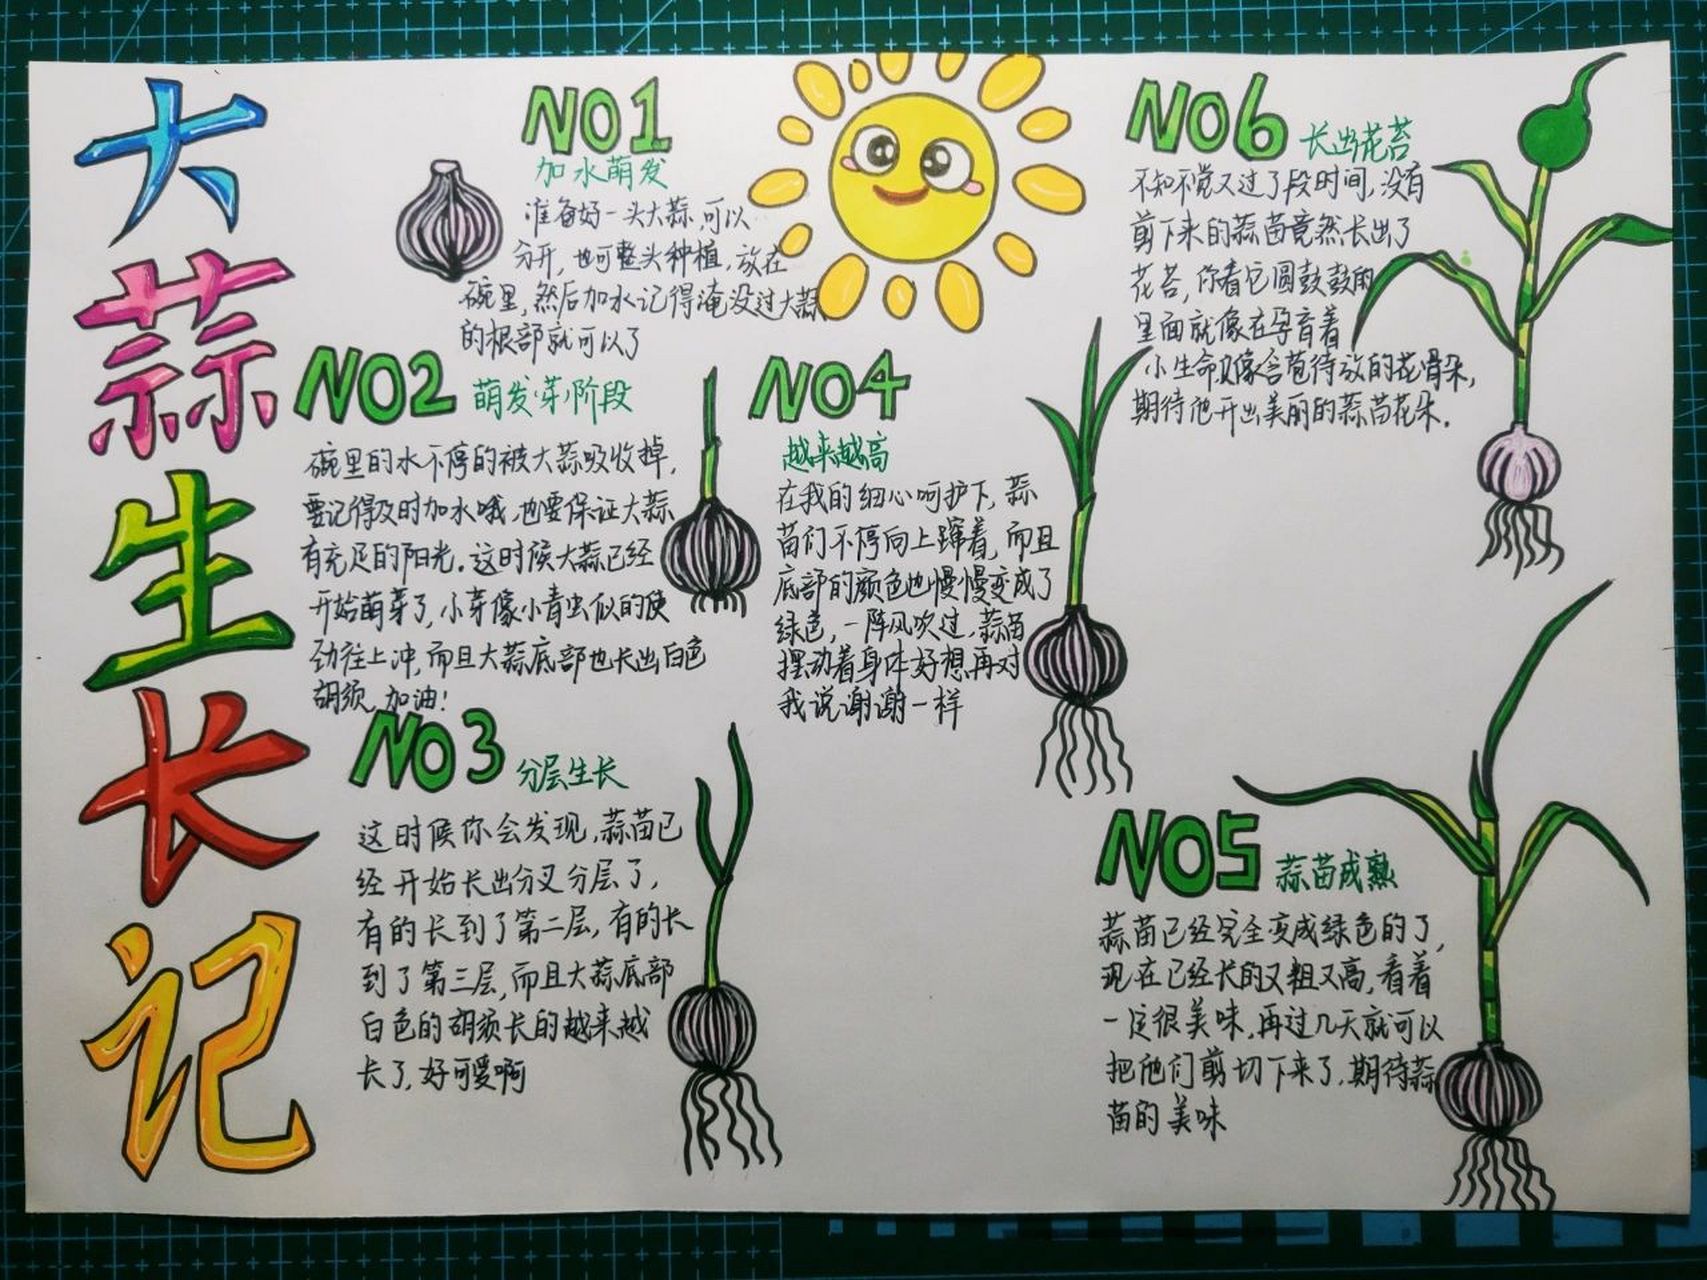 大蒜生长记
NO1
加水萌发
准备好一头大蒜,可以
分开,也可整头种植,放在
碗里,然后加水记得淹没过大蒜
的根部就可以了
NO2 萌发芽阶段
碗里的水不停的被大蒜吸收掉,
要记得及时加水哦,也要保证大蒜
有充足的阳光。这时候大蒜已经
开始萌芽了,小芽像小青虫似的使
劲往上冲,而且大蒜底部也长出白色
胡须,加油!
NO3 分层生长
这时候你会发现,蒜苗已
经开始长出分叉分层了,
有的长到了第二层,有的长
到了第三层,而且大蒜底部
白色的胡须长的越来越
长了,好可爱啊
NO4
越来越高
在我的细心呵护下,蒜
苗们不停向上蹿着,而且
底部的颜色也慢慢变成了
绿色,一阵风吹过,蒜苗
摆动着身体好想再对
我说谢谢一样
NO5 蒜苗成熟
蒜苗已经完全变成绿色的了,
现在已经长的又粗又高,看着
一定很美味,再过几天就可以
把他们剪切下来了,期待蒜
苗的美味
NO6 长出花苔
不知不觉又过了段时间,没有
剪下来的蒜苗竟然长出了
花苔,你看它圆鼓鼓的
里面就像在孕育着
小生命,像含苞待放的花骨朵,
期待他开出美丽的蒜苗花朵.